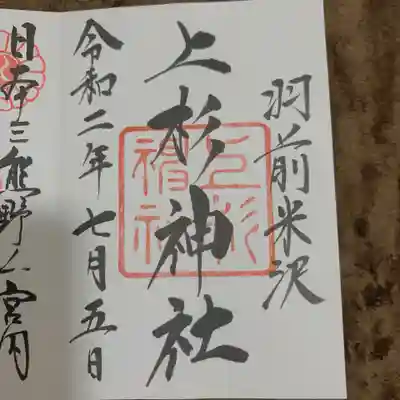 羽前米沢
上杉神社
令和二年七月五日
日本三熊野
宮内